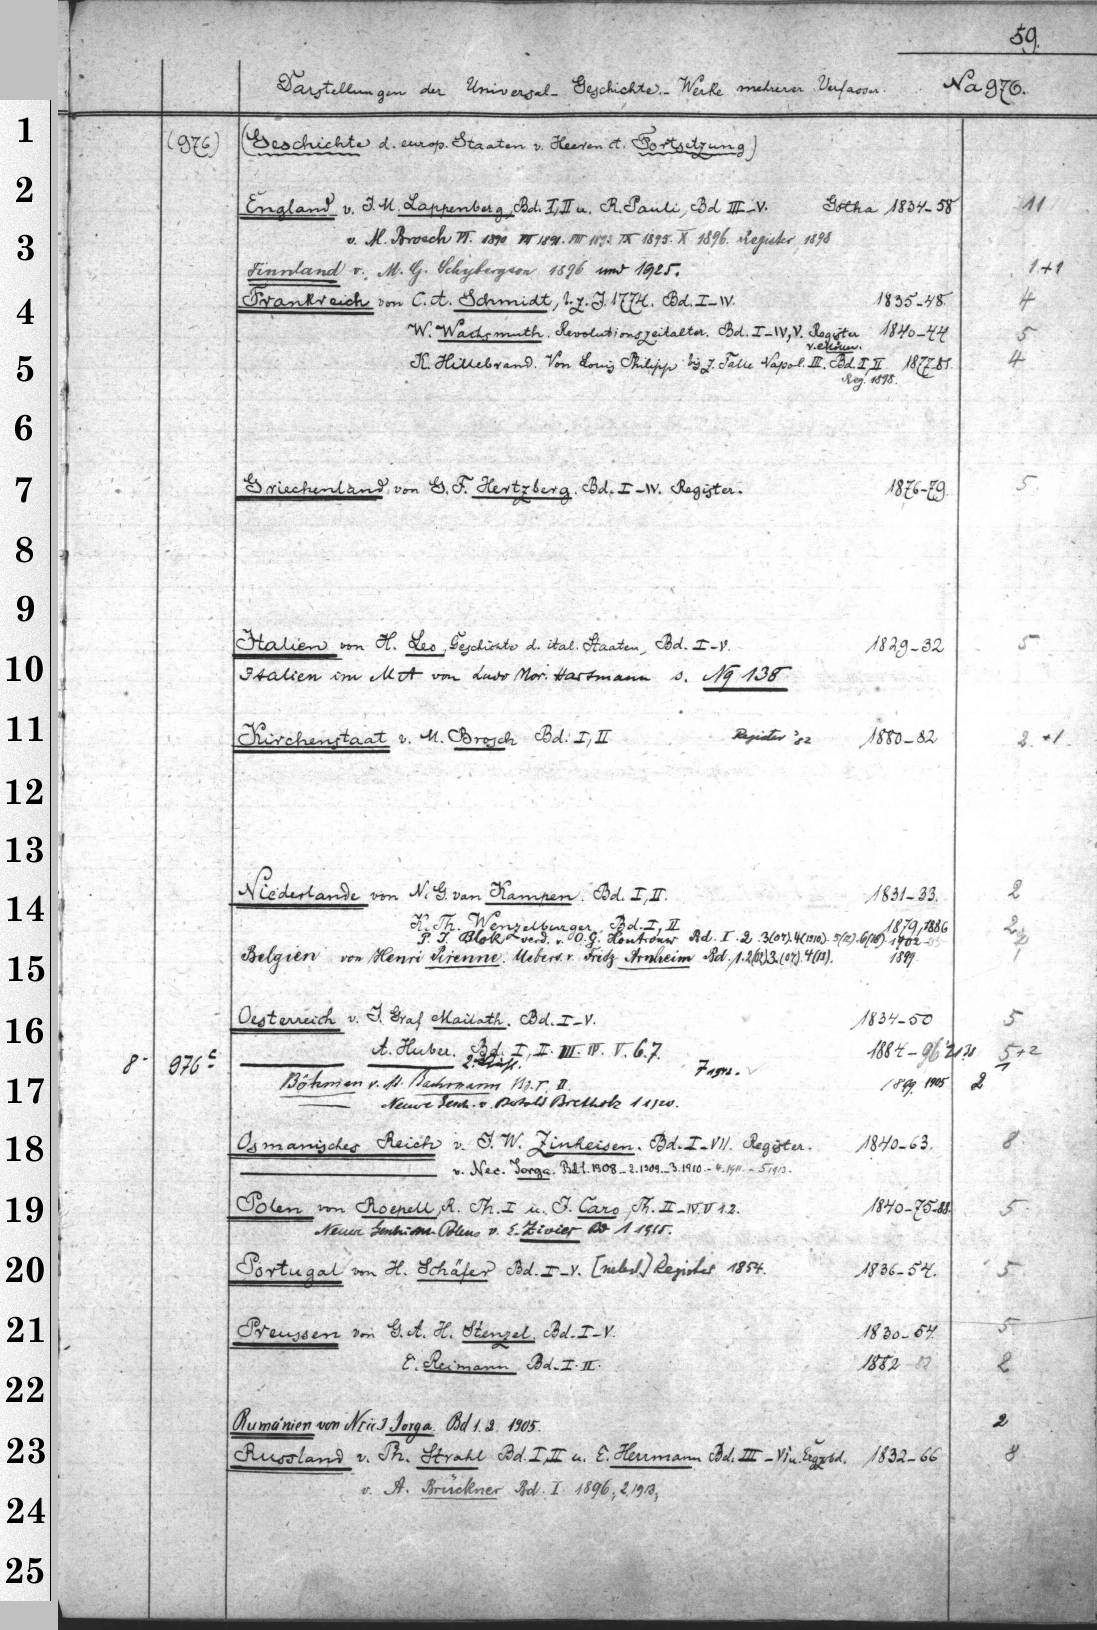 59.
Darstellungen der Universal-Geschichte.- Werke mehrerer Verfasser. Na 976.
1
(976) (Geschichte d. europ. Staaten v. Heeren et. Fortsetzung)
2
England v. J. M. Lappenberg, Bd. I, II u. R. Pauli, Bd III-V. Gotha 1834-58 11
3
v. M. Brosch VI. 1890 VII 1891. VIII 1893 IX 1895. X 1896. Register, 1898
Finnland v. M. G. Schybergson 1896 und 1925. 1+1
4
Frankreich von C. A. Schmidt, b. z. J. 1774. Bd. I-IV. 1835-48 4
W. Wachsmuth. Revolutionszeitalter. Bd. I-IV, V. Register 1840-44 5
5
K. Hillebrand. Von Louis Philipp bis z. Falle Napol. III. Bd. I, II 1877-81. 4
Reg. 1898.
6
7
Griechenland von G. F. Hertzberg. Bd. I-IV. Register. 1876-79. 5
8
9
Italien von H. Leo, Geschichte d. ital. Staaten, Bd. I-V. 1829-32 5
10
Italien im MA von Ludo Mor. Hartmann s. Nq 138
11
Kirchenstaat v. M. Brosch Bd. I, II Register '82 1880-82 2 +1.
12
13
Niederlande von N. G. van Kampen. Bd. I, II. 1831-33. 2
14
K. Th. Wenzelburger. Bd. I, II 1879, 1886 2
P. J. Blok verd. v. O. G. Houtrouw Bd. I. 2. 3(07). 4(1910). 5(12). 6(18) 1902
15
Belgien von Henri Pirenne. Uebers. v. Fritz Arnheim Bd. 1. 2(02) 3. (07). 4(13). 1899.
16
Oesterreich v. J. Graf Mailath. Bd. I-V. 1834-50 5
A. Huber. Bd. I, II. III. IV. V. 6. 7. 1884-96 5+2
8- 976c
17
Böhmen v. A. Bachmann Bd. I, II. 1899. 1905 2
Neuere Gesch. v. Berthold Bretholz 1 1920.
18
Osmanisches Reich v. J. W. Zinkeisen. Bd. I-VII. Register. 1840-63. 8
v. Nic. Jorga. Bd 1. 1908-2. 1909-3. 1910-4. 1911.-5 1913.
19
Polen von Roepell, R. Th. I u. J. Caro, Th. II-IV. V 1.2. 1840-75-88 5
Neuere Geschichte Polens v. E. Zivier Bd 1 1915.
20
Portugal von H. Schäfer Bd. I-V. [nebst] Register 1854. 1836-54. 5
21
Preussen von G. A. H. Stenzel. Bd. I-V. 1830-54. 5
E. Reimann Bd. I. II. 1882 2
22
Rumänien von Nic. J Jorga Bd 1. 2. 1905. 2
23
Russland v. Ph. Strahl Bd. I, II u. E. Herrmann Bd. III-VI u. Ergzbd. 1832-66 8
v. A. Brückner Bd. I 1896, 2, 1913,
24
25